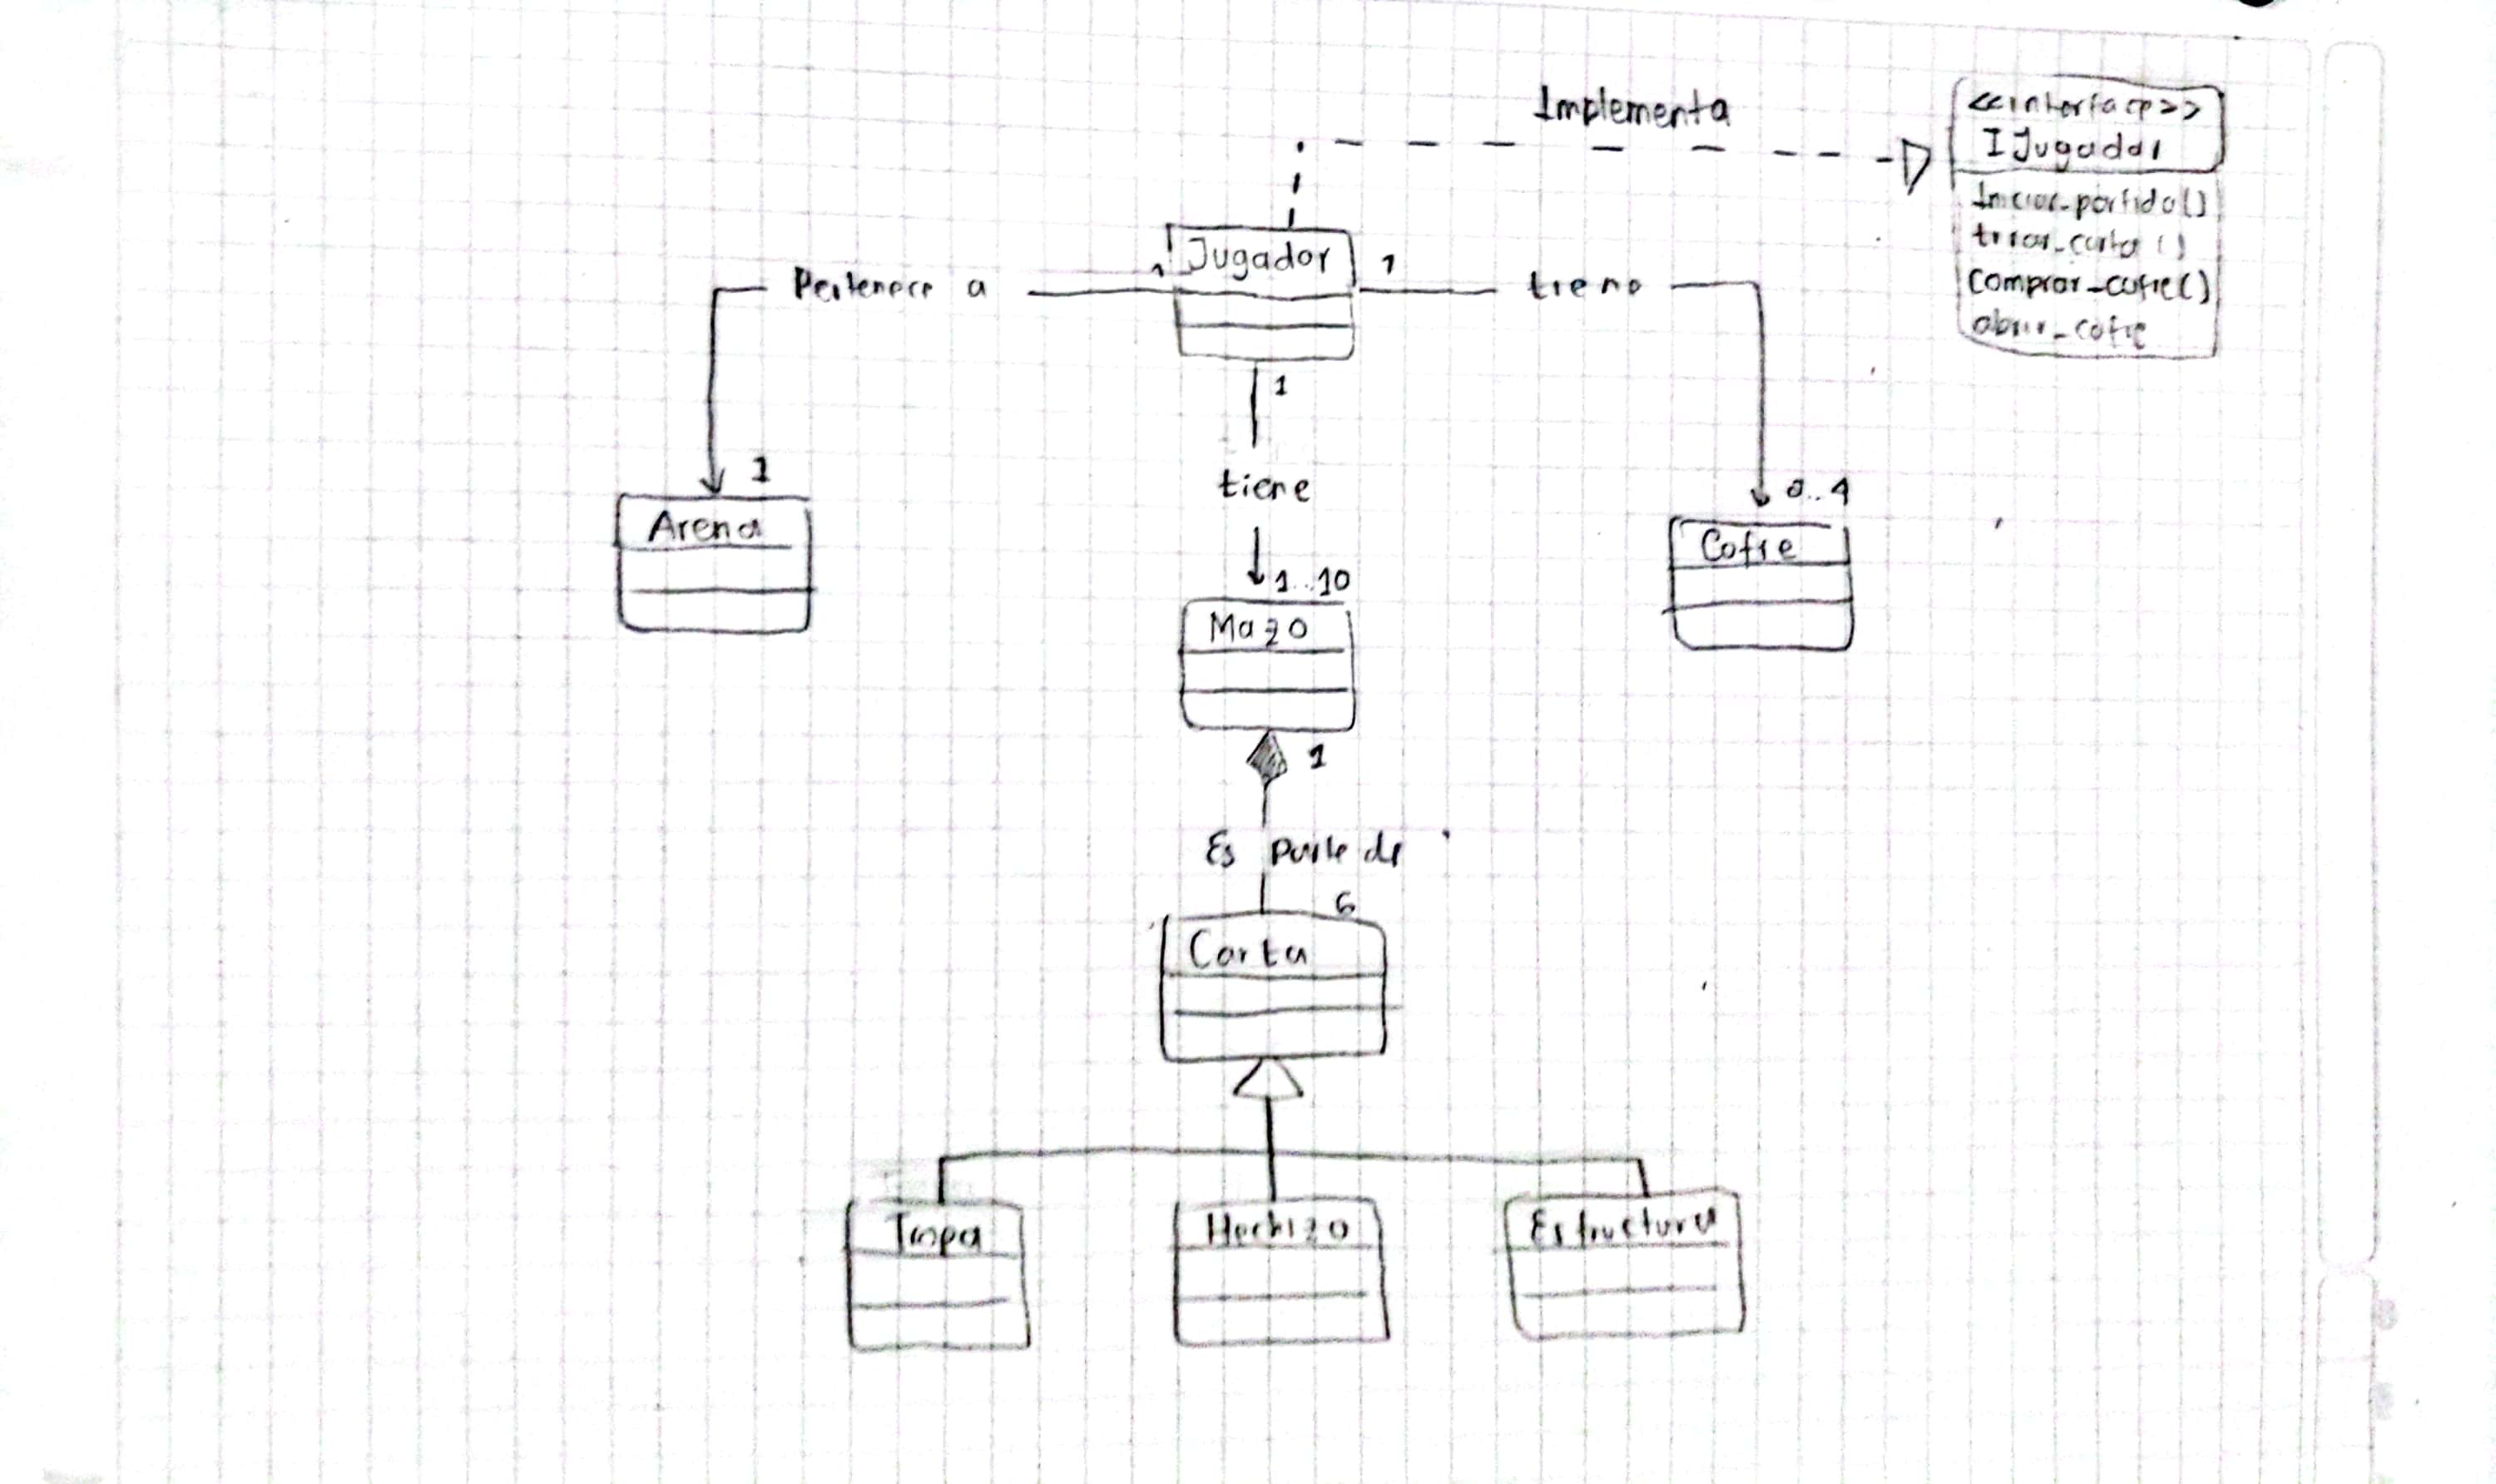 Implementa
<<interface>>
IJugador
Iniciar_partida()
tirar_carta()
Comprar_cofre()
abrir_cofre
1 Jugador 1
Pertenece a
tiene
1
1
tiene
0..4
Arena
Cofre
1..10
Mazo
1
Es parte de
6
Carta
Tropa
Hechizo
Estructura